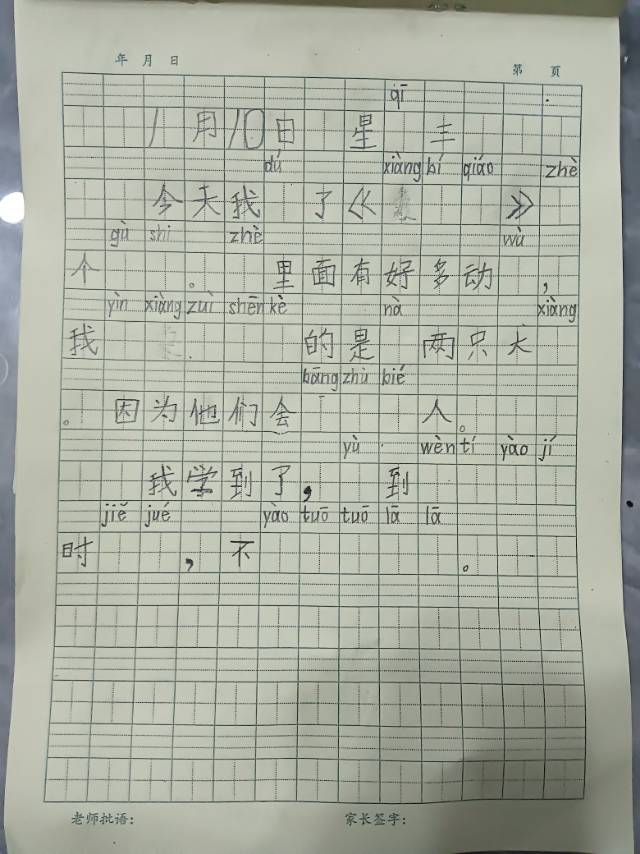 年 月 日 第 页
qī
11月10日 星 三
dú xiàng bí qiáo zhè
今天我 了《 》
gù shi zhè wù
个 。 里面有好多动 ，
yìn xiàng zuì shēn kè nà xiàng
我 的是 两只大
bāng zhù bié
。因为他们会 人。
yù wèn tí yào jí
我学到了， 到
jiě jué yào tuō tuō lā lā
时 ，不 。
老师批语： 家长签字：